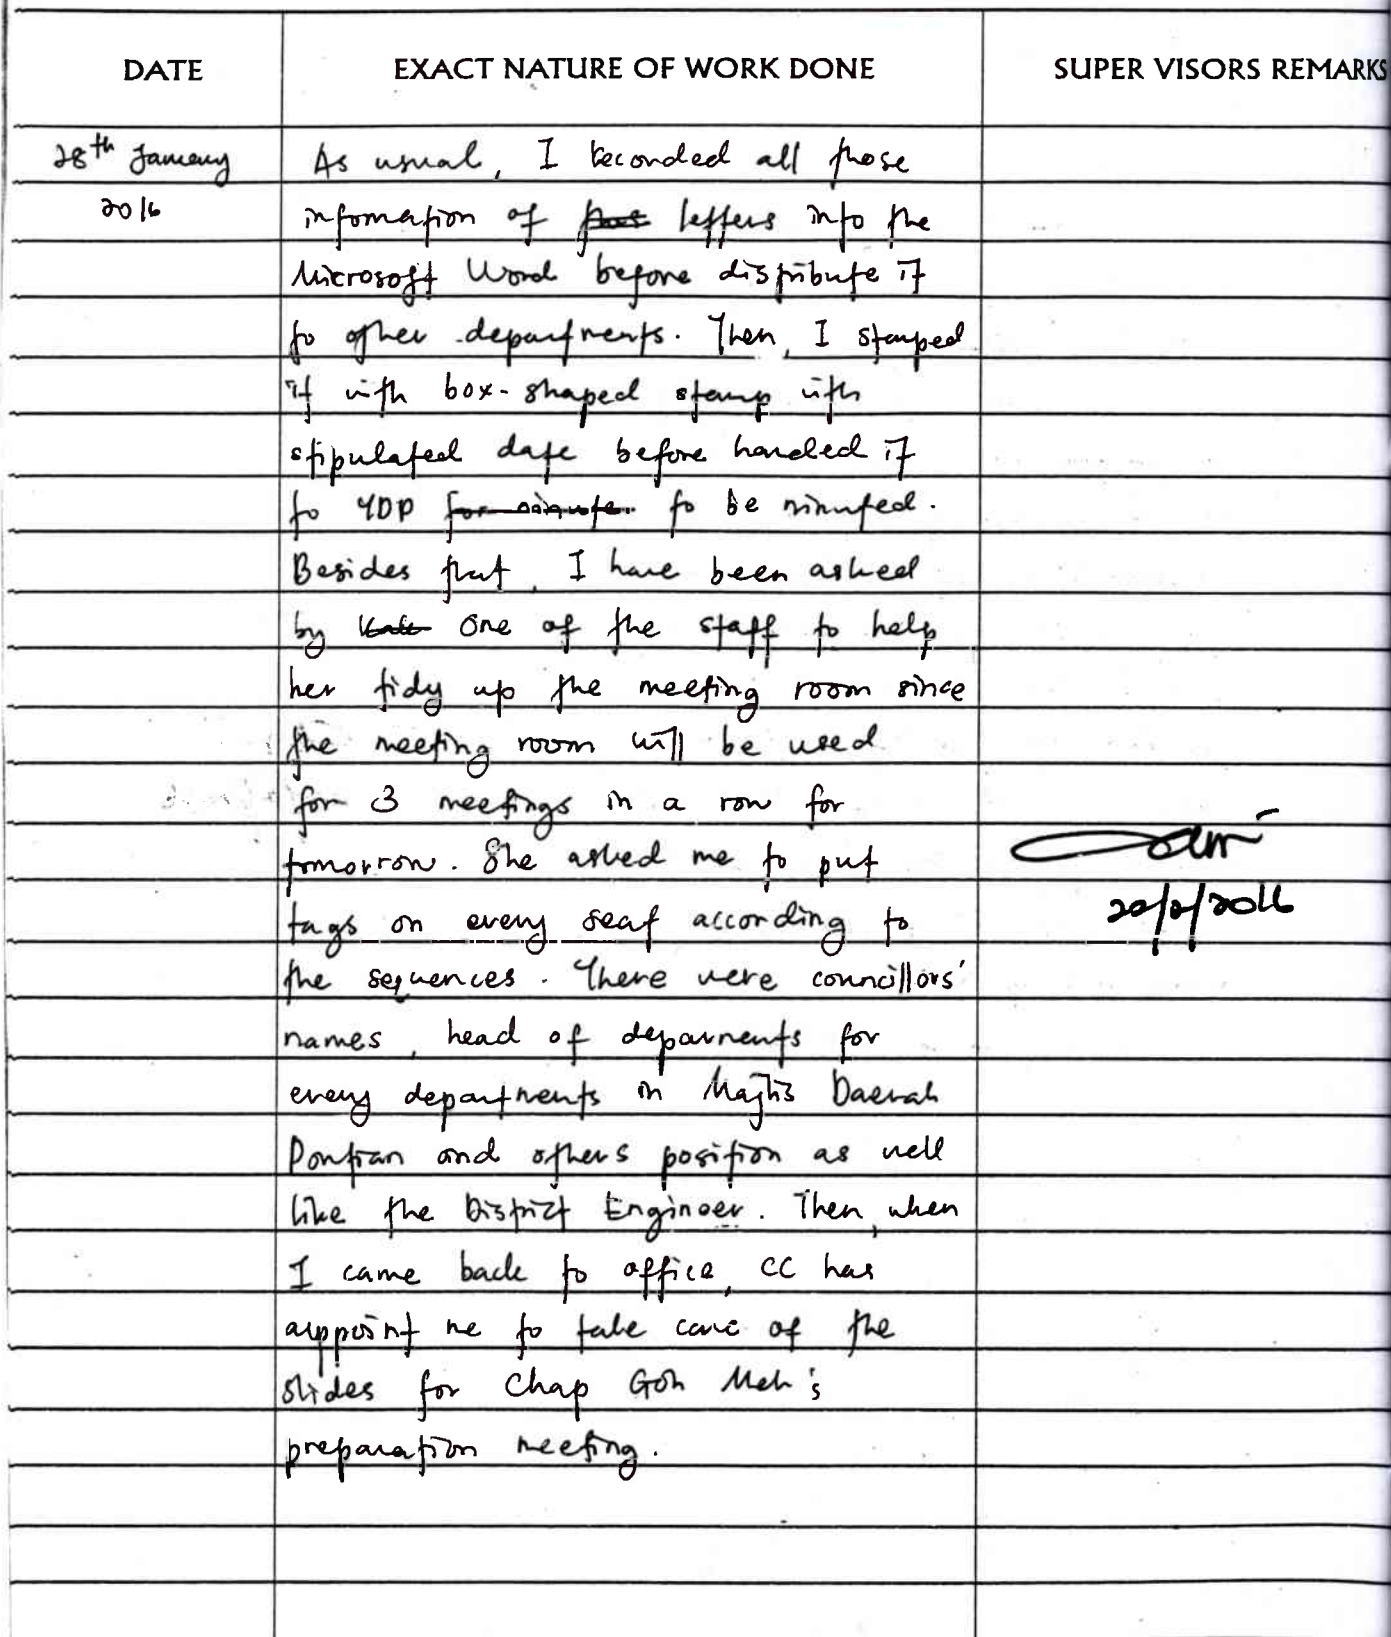 DATE EXACT NATURE OF WORK DONE SUPER VISORS REMARKS
28th January As usual, I reconded all those
2016 infomation of letters into the
Microsoft Word before distribute it
to other departments. Then, I stamped
it with box-shaped stamp with
stipulated date before handed it
to YDP for minute. to be minuted.
Besides that, I have been asked
by one of the staff to help
her tidy up the meeting room since
the meeting room will be used
for 3 meetings in a row for
tomorrow. She asked me to put
tags on every seat according to
20/2/2016
the sequences. There were councillors'
names, head of deparments for
every departments in Majlis Daerah
Pontian and others position as well
like the District Engineer. Then, when
I came back to office, CC has
appoint me to take care of the
slides for Chap Goh Meh's
preparation meeting.